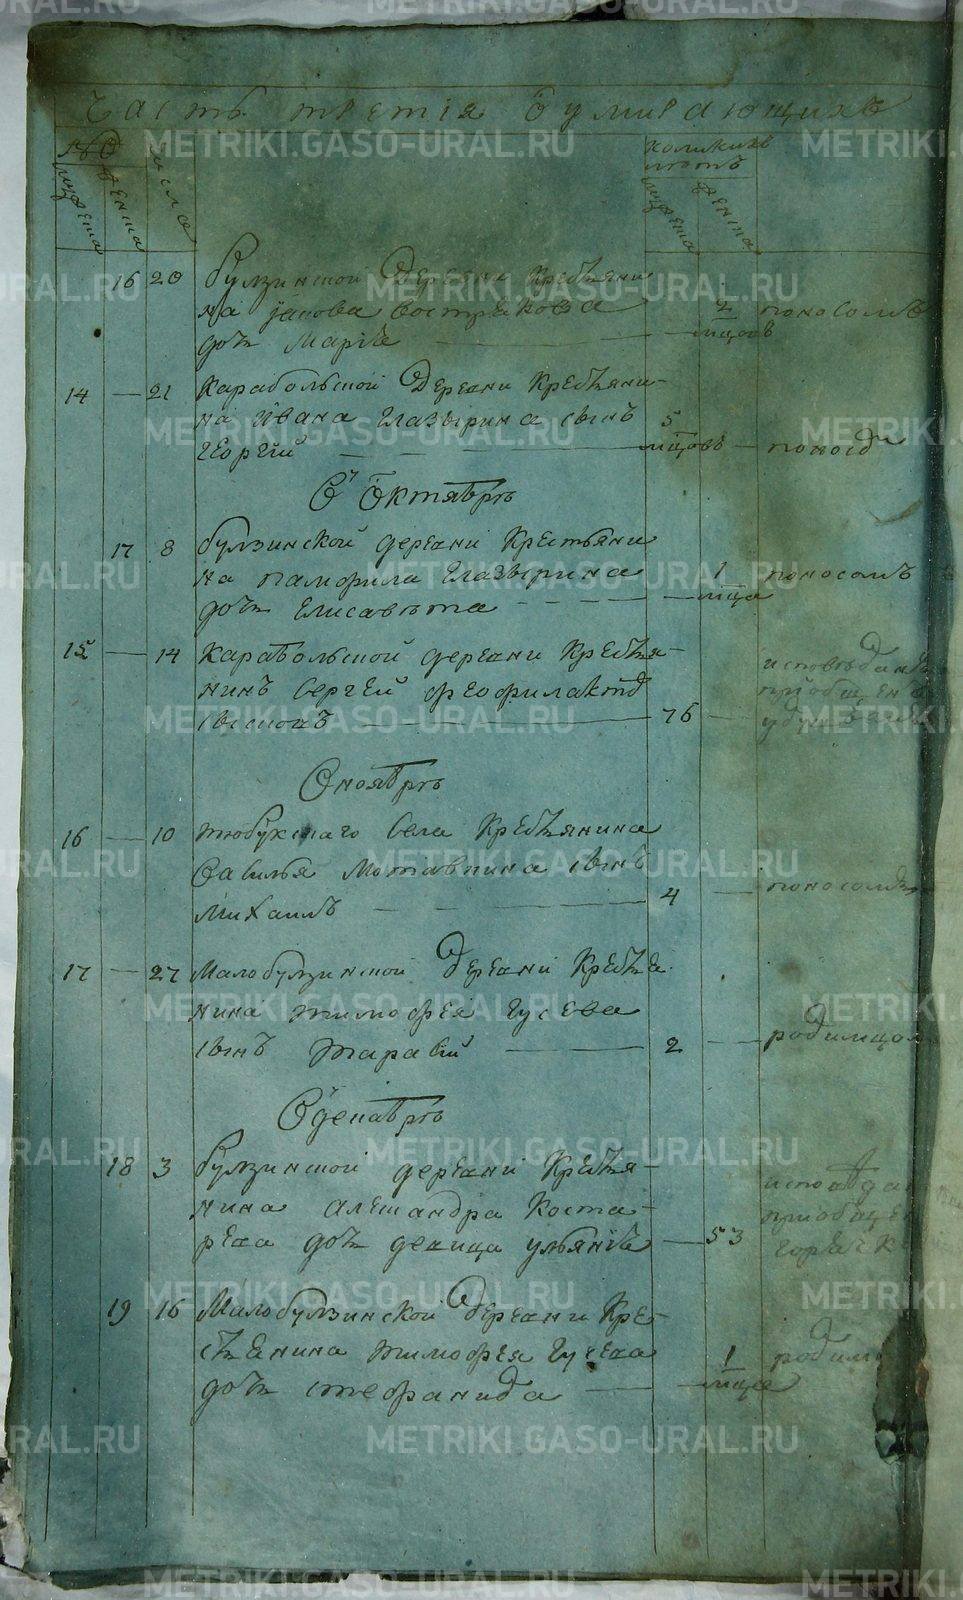 Часть третія Оумирающихъ
числа
коликихъ
лѣтъ
мужеска
женска
мужеска
женска
16 20 булзинской деревни крестьяни
на Іакова вострикова
дочь Маріѣ — 2 мцовъ поносомъ
14 — 21 Карабольской деревни крестьяни-
на Ивана Глазырина сынъ
Георгій — 5 мцовъ — поносо
В Октябрѣ
17 8 булзинской деревни крестьяни
на памфила Глазырина
дочь Елисавѣта — 1 мца поносомъ
15 — 14 Карабольской деревни крестья-
нинъ Сергей феофилактовъ
76 — исповѣданъ
пріобщенъ
В ноябрѣ
16 — 10 тюбукскаго Села крестьянина
Савилья Мотавкина сынъ
Михаилъ — 4 — поносомъ
17 — 27 Малобулзинской деревни крестья
нина тимофея Гусева
сынъ тарасій — 2 — родимцом
В декабрѣ
18 3 булзинской деревни крестья-
нина александра Коста-
рева дочь девица ульяніѣ — 53
испов да
пріобщен
горячк
19 16 Малобулзинской деревни кре-
стьянина тимофея Гусева
дочь стефанида — 1 мца родим
METRIKI.GASO-URAL.RU